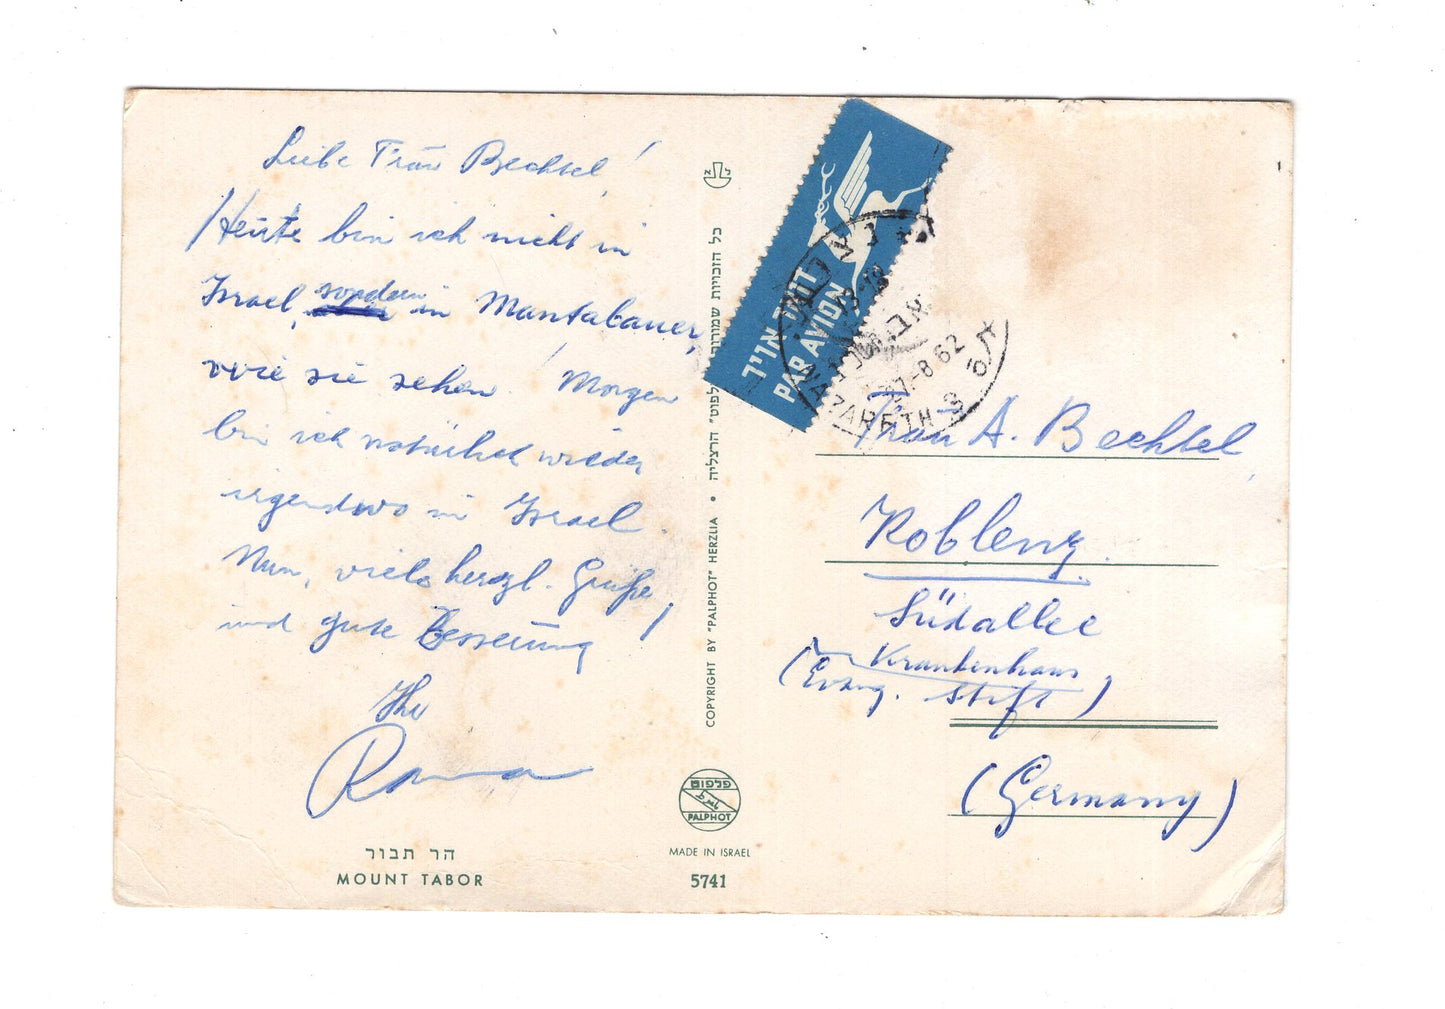 Liebe Frau Bechtel!
Heute bin ich nicht in
Israel, sondern in Mantabauer,
wie sie sehen! Morgen
bin ich natürlich wieder
irgendwo in Israel.
Nun, viele herzl. Grüße,
und gute Besserung
Ihr
הר תבור
MOUNT TABOR
כל הזכויות שמורות
הרצליה
COPYRIGHT BY "PALPHOT" HERZLIA
פלפוט
PALPHOT
MADE IN ISRAEL
5741
דואר אויר
PAR AVION
NAZARETH
13-18
-8 62
Frau A. Bechtel
Koblenz
Südallee
Krankenhaus
(Evang. Stift)
(Germany)